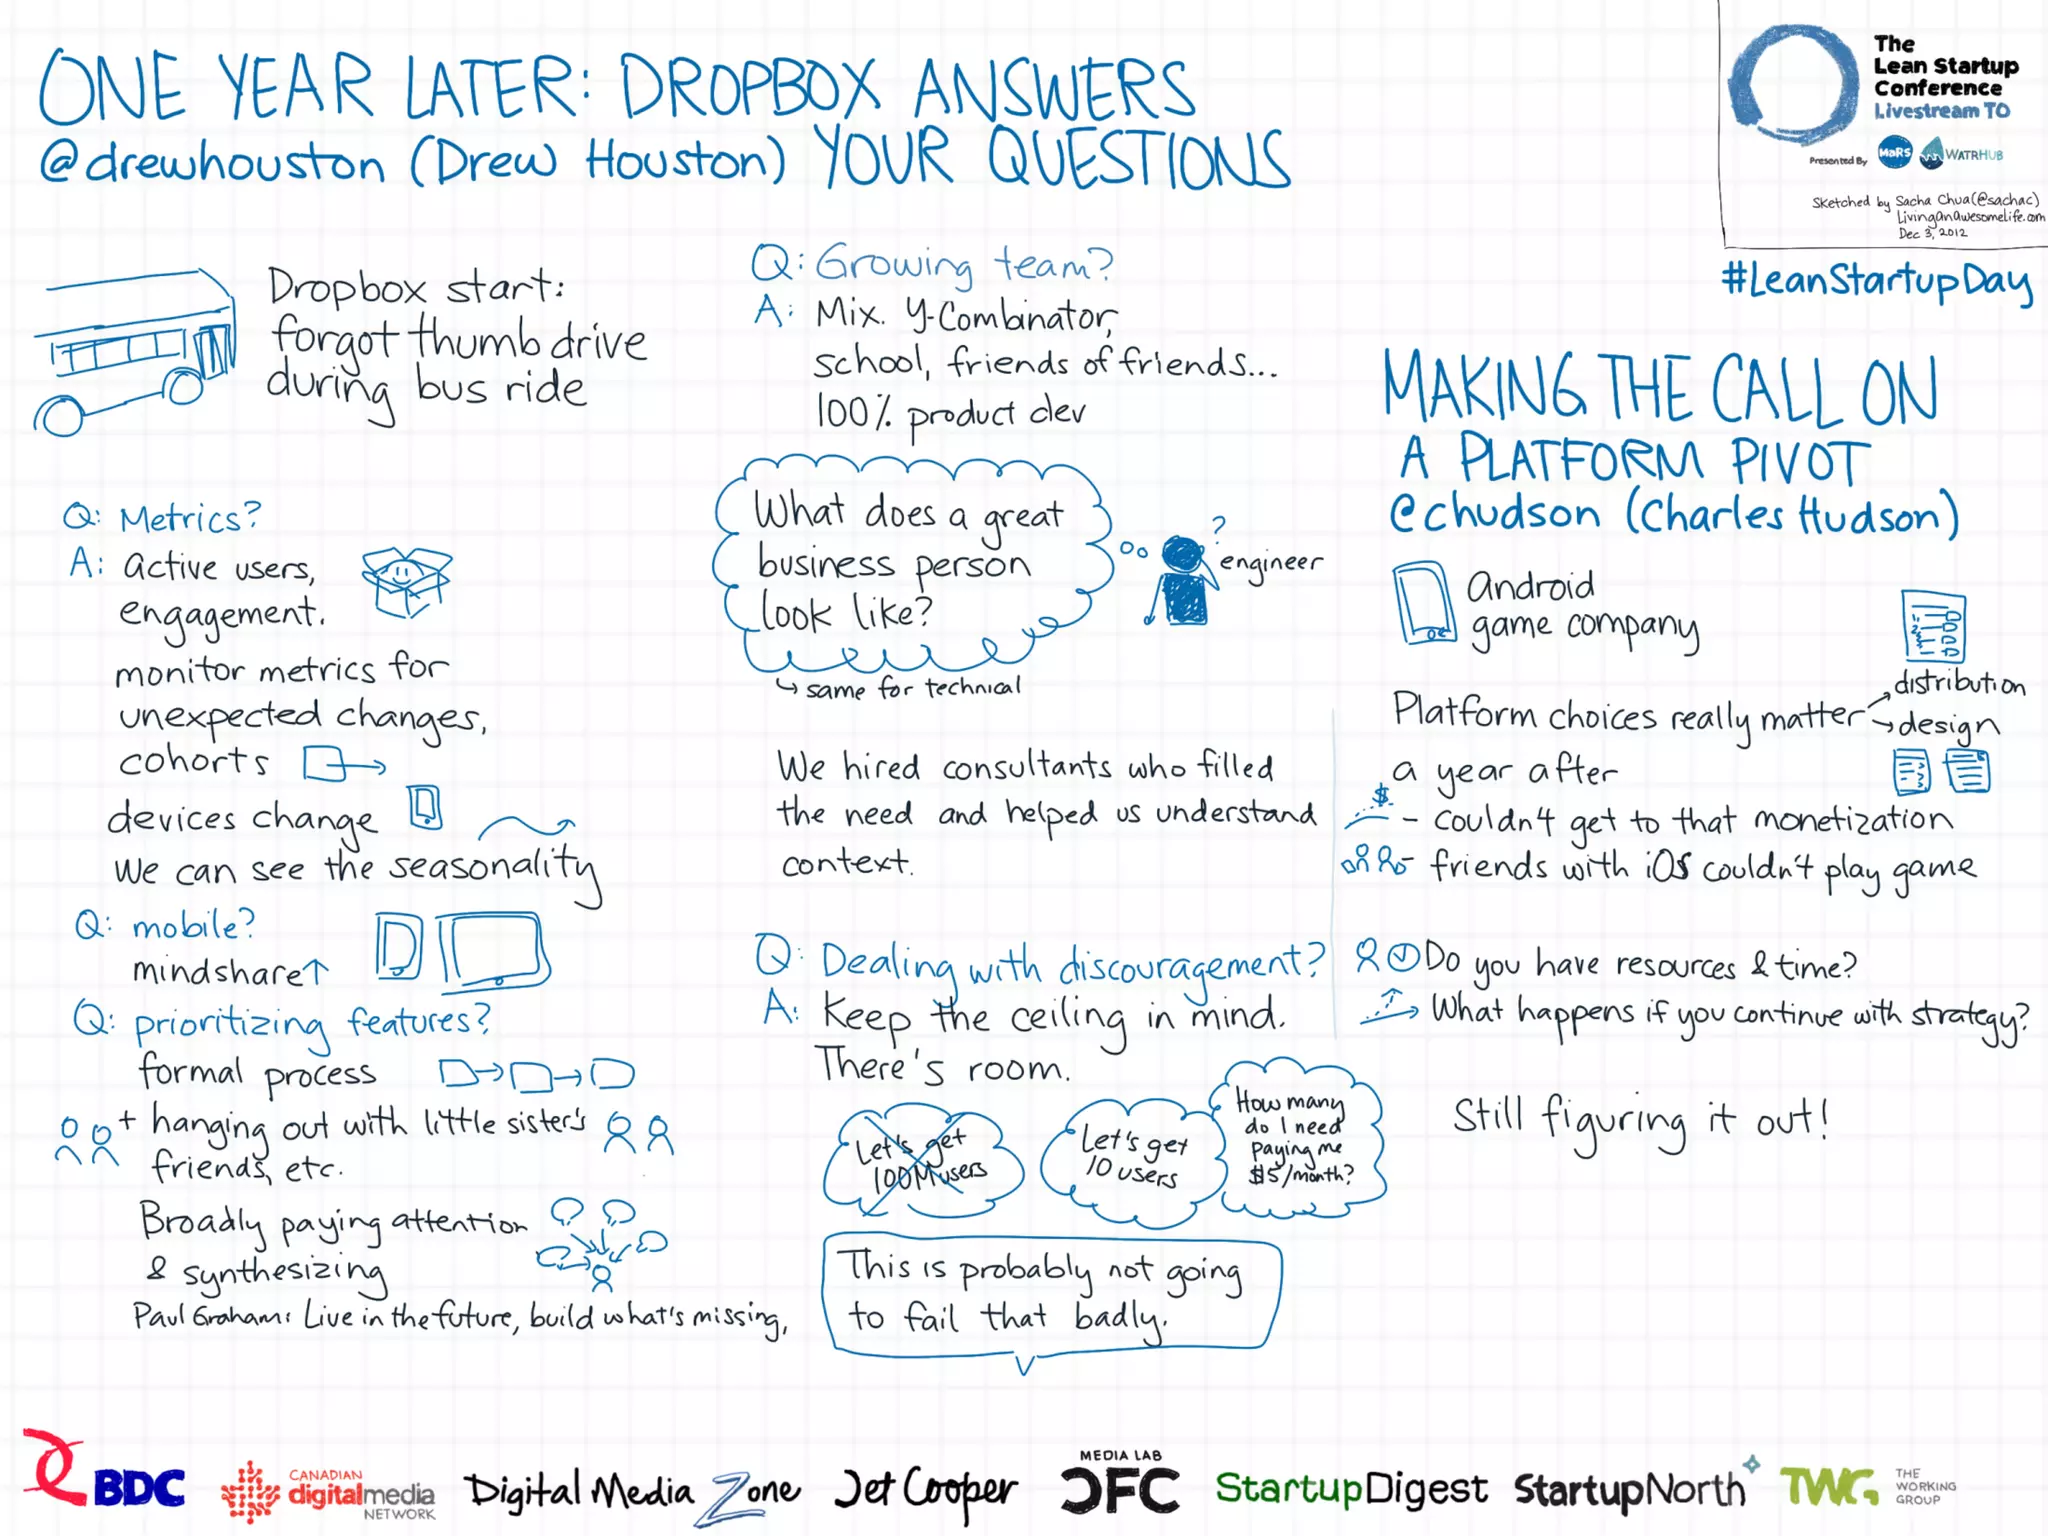 ONE YEAR LATER: DROPBOX ANSWERS
@drewhouston (Drew Houston) YOUR QUESTIONS
The
Lean Startup
Conference
Livestream TO
Presented By MaRS WATRHUB
Sketched by Sacha Chua (@sachac)
LivingAnAwesomeLife.com
Dec 3, 2012
#LeanStartupDay
Dropbox start:
forgot thumb drive
during bus ride
Q: Metrics?
A: active users,
engagement.
monitor metrics for
unexpected changes,
cohorts
devices change
We can see the seasonality
Q: mobile?
mindshare↑
Q: prioritizing features?
formal process
+ hanging out with little sister's
friends, etc.
Broadly paying attention
& synthesizing
Paul Graham: Live in the future, build what's missing,
Q: Growing team?
A: Mix. Y-Combinator,
school, friends of friends...
100% product dev
What does a great
business person
look like?
?
engineer
↳ same for technical
We hired consultants who filled
the need and helped us understand
context.
Q: Dealing with discouragement?
A: Keep the ceiling in mind.
There's room.
Let's get
100M users
Let's get
10 users
How many
do I need
paying me
$5/month?
This is probably not going
to fail that badly.
MAKING THE CALL ON
A PLATFORM PIVOT
@chudson (Charles Hudson)
android
game company
Platform choices really matter
distribution
design
a year after
$
- couldn't get to that monetization
- friends with iOS couldn't play game
Do you have resources & time?
What happens if you continue with strategy?
Still figuring it out!
BDC
CANADIAN
digitalmedia
NETWORK
Digital Media Zone
Jet Cooper
MEDIA LAB
CFC
StartupDigest
StartupNorth
TWG
THE
WORKING
GROUP